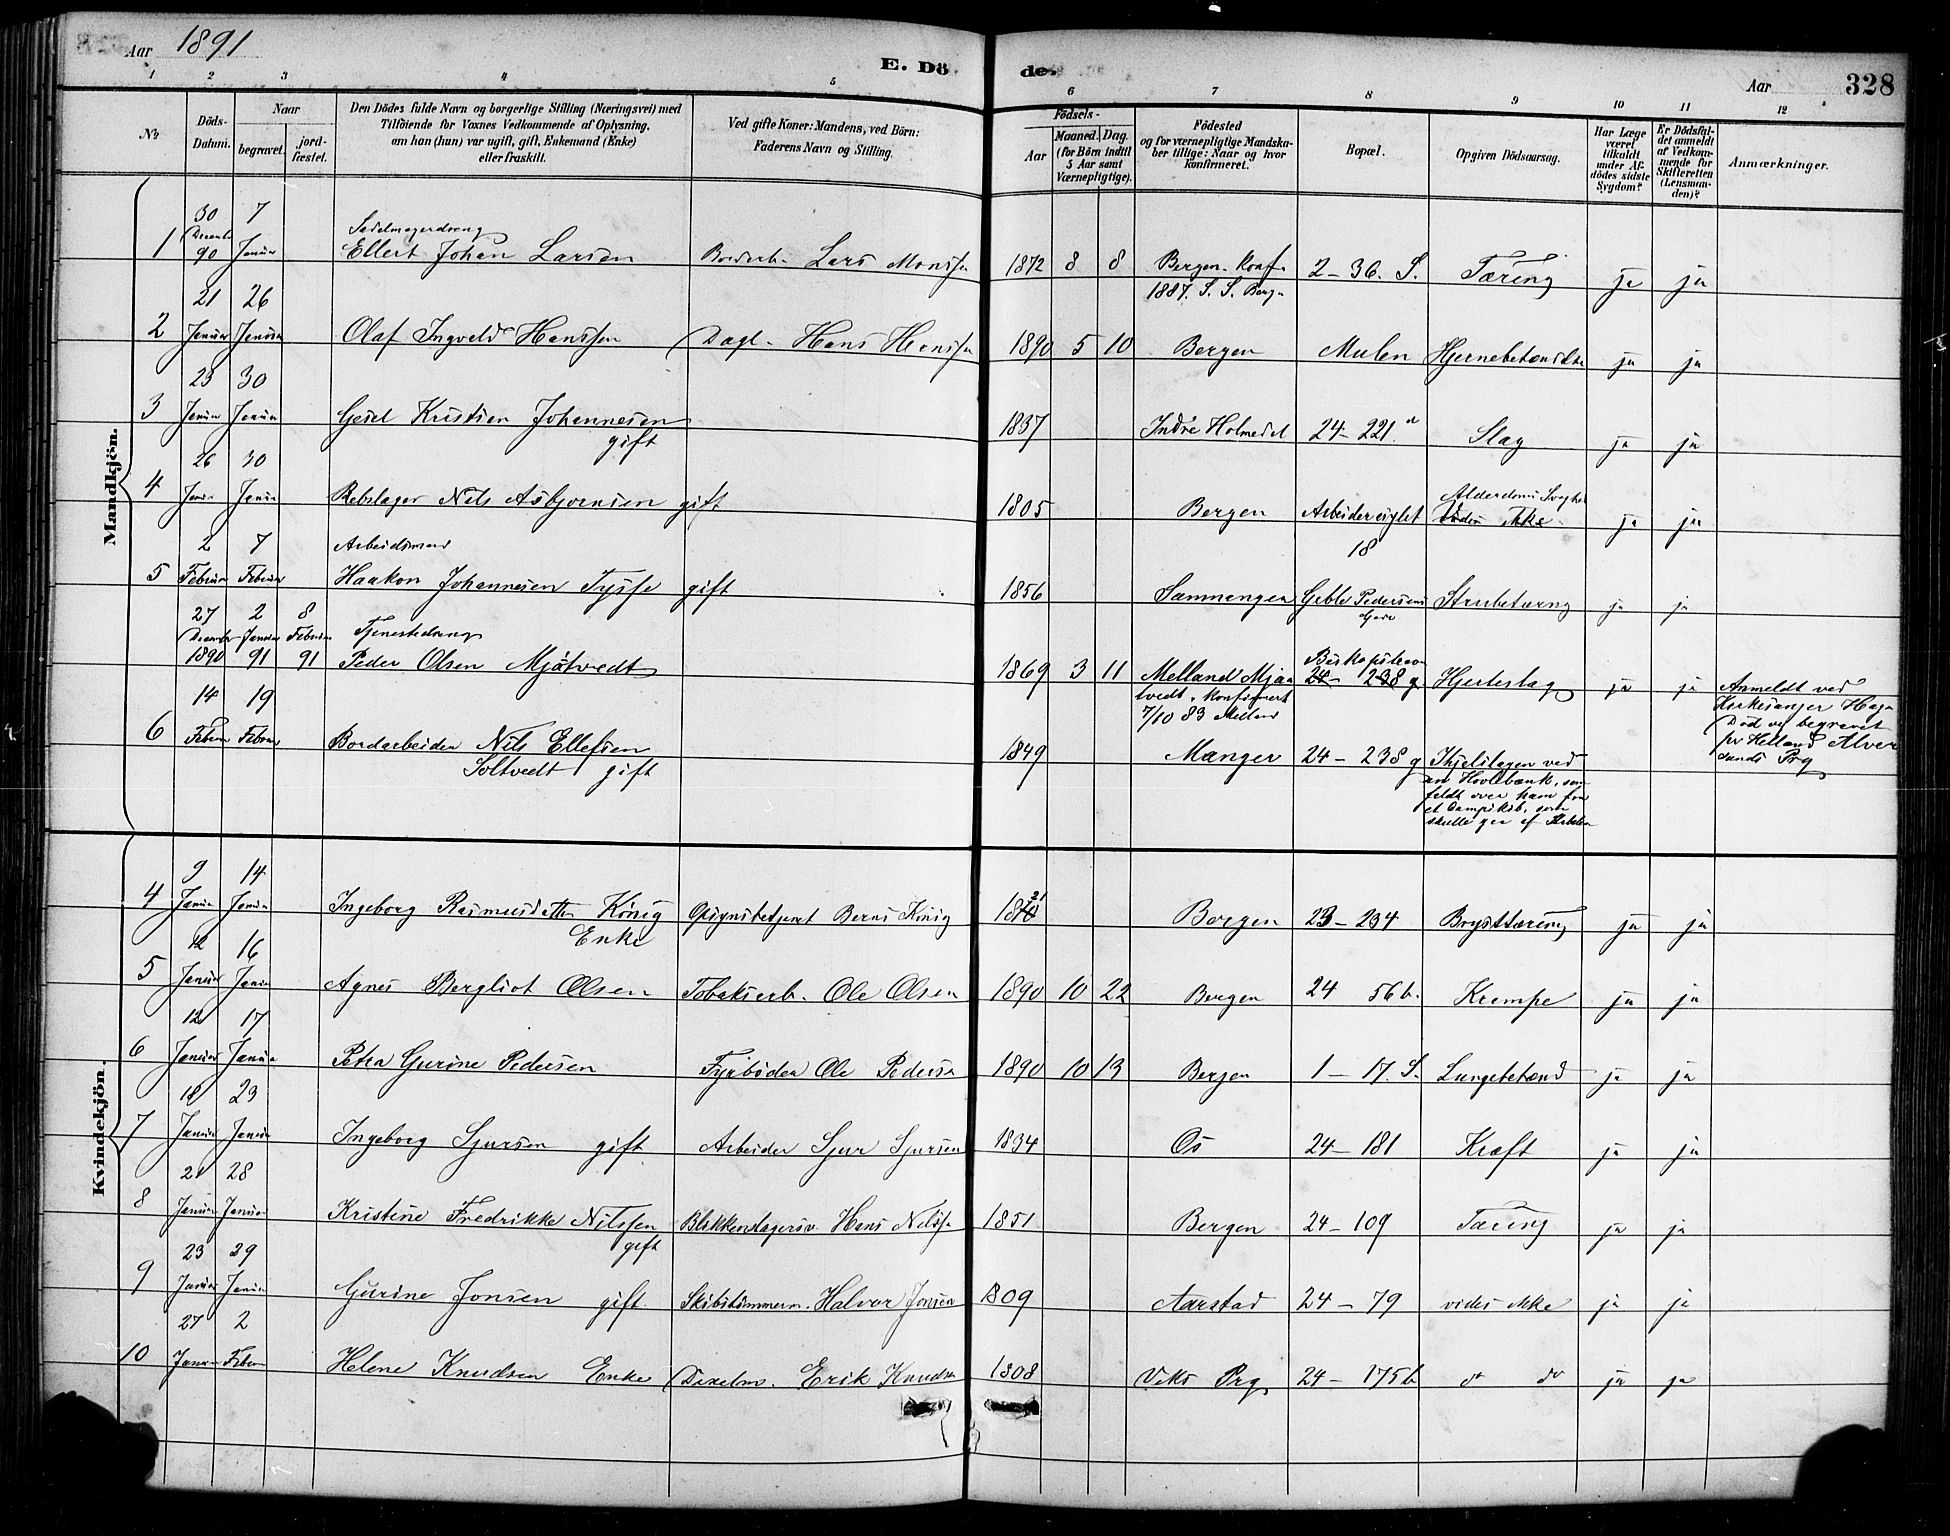 Aar 1891
E. Döde.
Aar
328
1 2 3 4 5 6 7 8 9 10 11 12
No
Döds-Datum.
Naar
begravet.
jord-fæstet.
Den Dödes fulde Navn og borgerlige Stilling (Næringsvei) med
Tilföiende for Voxnes Vedkommende af Oplysning,
om han (hun) var ugift, gift, Enkemand (Enke)
eller fraskilt.
Ved gifte Koner: Mandens, ved Börn:
Faderens Navn og Stilling.
Födsels-
Aar
Maaned. Dag.
(for Börn indtil
5 Aar samt
Værnepligtige).
Födested
og for værnepligtige Mandska-
ber tillige: Naar og hvor
konfirmeret.
Bopæl.
Opgiven Dödsaarsag.
Har Læge
været
tilkaldt
under Af-
dödes sidste
Sygdom?
Er Dödsfal-
det anmeldt
af Vedkom-
mende for
Skifteretten
(Lensman-
den)?
Anmærkninger.
Mandkjön.
30 7
Sadelmagerdreng
1 Decembr 90 Januar Ellert Johan Larsen Bordarb. Lars Monsen 1872 8 8 Bergen. Konf. 2-36. S. Tæring ja ja
1887. S. S. Bergen
21 26
2 Januar Januar Olaf Ingvald Hanssen Dagl. Hans Hanssen 1890 5 10 Bergen Mulen Hjernebetændelse ja ja
23 30
3 Januar Januar Gjert Kristian Johannesen 1837 Indre Holmedal 24-221 d Slag ja ja
gift
26 30
4 Januar Januar Rebslager Nils Asbjørnsen gift 1805 Bergen Arbeiderviglet Alderdoms Svaghed
vides ikke ja ja
18
2 7
Arbeidsmand
5 Februar Februar Haakon Johannesen Tysse gift 1856 Samnanger Geble Pedersens Gard Strubetæring ja ja
27 2 8
December Januar Februar Tjenestedreng
1890 91 91 Peder Olsen Mjåtvedt 1869 3 11 Melland Mjaa 24- 238 g Hjerteslag ja ja Anmeldt ved
tvedt, konfirmert Kirkesanger Hage
7/10 83 Melland Død og begravet
14 19
paa Helland Alver
sunds Prg
6 Februar Februar Bordarbeider Nils Ellefsen 1849 Manger 24 - 238 g Ihjelslagen ved
Soltvedt gift en Hovlebænk, som
feldt over ham fra
et Dampskib, som
skulde gaa af Stabelen
Kvindekjön.
9 14
4 Januar Januar Ingeborg Rasmusdatter König Opsynsbetjent Bernt König 1821 Bergen 23-234 Brysttæring ja ja
Enke
12 16
5 Januar Januar Agnes Bergliot Olsen Tobaksarb. Ole Olsen 1890 10 22 Bergen 24 56 b. Krampe ja ja
12 17
6 Januar Januar Petra Gurine Pedersen Fyrbøder Ole Pedersen 1890 10 13 Bergen 1 - 17. S. Lungebetænd ja ja
18 23
7 Januar Januar Ingeborg Sjursen gift Arbeider Sjur Sjursen 1834 Os 24-181 Kræft ja ja
21 28
8 Januar Januar Kristine Fredrikke Nilssen Blikkenslagersv. Hans Nilssen 1851 Bergen 24-109 Tæring ja ja
gift
23 29
9 Januar Januar Gurine Jonsen gift Skibstømmerm. Halvor Jonsen 1809 Aarstad 24-79 vides ikke ja ja
27 2
10 Januar Februar Helene Knudsen Enke Dixelm. Erik Knudsen 1808 Viks Prg 24-175b do do ja ja